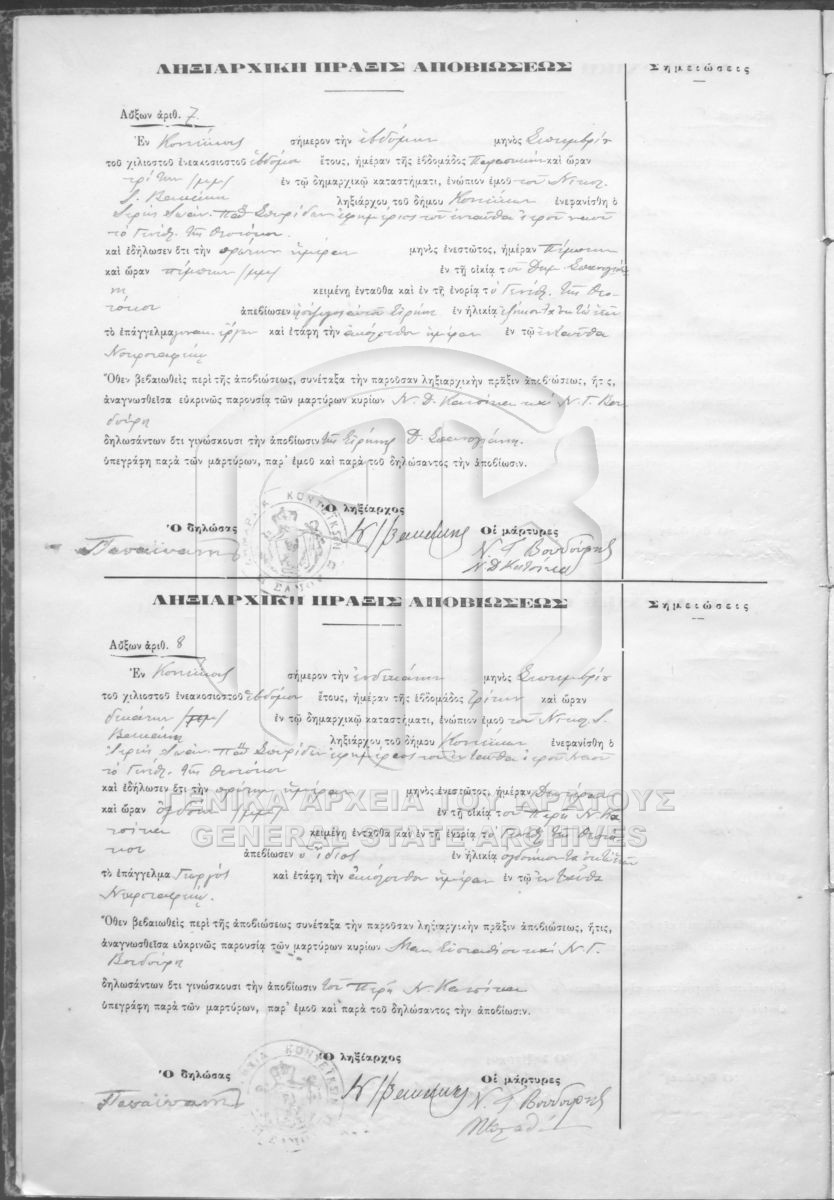 ΛΗΞΙΑΡΧΙΚΗ ΠΡΑΞΙΣ ΑΠΟΒΙΩΣΕΩΣ
Σημειώσεις
Αὔξων ἀριθ. 7.
Ἐν σήμερον τὴν ἑβδόμην μηνὸς Σεπτεμβρίου
τοῦ χιλιοστοῦ ἐνεακοσιοστοῦ ἑβδόμου ἔτους, ἡμέραν τῆς ἑβδομάδος Παρασκευὴν καὶ ὥραν
τρίτην /μμ/ ἐν τῷ δημαρχικῷ καταστήματι, ἐνώπιον ἐμοῦ τοῦ Νικολ.
ληξιάρχου τοῦ δήμου ἐνεφανίσθη ὁ
Ἱερεὺς Ἰωάν. ἐφημέριος τοῦ ἐνταῦθα ἱεροῦ ναοῦ
τὸ Γενέθλ. τῆς Θεοτόκου
καὶ ἐδήλωσεν ὅτι τὴν μηνὸς ἐνεστῶτος, ἡμέραν Πέμπτην
καὶ ὥραν πέμπτην /μμ/ ἐν τῇ οἰκίᾳ τοῦ Δημ.
κειμένῃ ἐνταῦθα καὶ ἐν τῇ ἐνορίᾳ τὸ Γενέθλ. τῆς Θεο-
τόκου ἀπεβίωσεν ἡ σύζυγος αὐτοῦ Εἰρήνη ἐν ἡλικίᾳ ἑξήκοντα ὀκτὼ ἐτῶν
τὸ ἐπάγγελμα καὶ ἐτάφη τὴν ἀκόλουθον ἡμέραν ἐν τῷ ἐνταῦθα
Νεκροταφείῳ
Ὅθεν βεβαιωθεὶς περὶ τῆς ἀποβιώσεως, συνέταξα τὴν παροῦσαν ληξιαρχικὴν πρᾶξιν ἀποβιώσεως, ἥτις,
ἀναγνωσθεῖσα εὐκρινῶς παρουσίᾳ τῶν μαρτύρων κυρίων Ν. Δ. Κατσίκα καὶ Ν. Γ. Βου-
δούρη
δηλωσάντων ὅτι γινώσκουσι τὴν ἀποβίωσιν τῆς Εἰρήνης Δ.
ὑπεγράφη παρὰ τῶν μαρτύρων, παρ' ἐμοῦ καὶ παρὰ τοῦ δηλώσαντος τὴν ἀποβίωσιν.
Ὁ ληξίαρχος
Ὁ δηλώσας
Οἱ μάρτυρες
Ν. Γ. Βουδούρης
Ν Δ Κατσίκα
ΛΗΞΙΑΡΧΙΚΗ ΠΡΑΞΙΣ ΑΠΟΒΙΩΣΕΩΣ
Σημειώσεις
Αὔξων ἀριθ. 8
Ἐν σήμερον τὴν ἑνδεκάτην μηνὸς Σεπτεμβρίου
τοῦ χιλιοστοῦ ἐνεακοσιοστοῦ ἑβδόμου ἔτους, ἡμέραν τῆς ἑβδομάδος Τρίτην καὶ ὥραν
δεκάτην ἐν τῷ δημαρχικῷ καταστήματι, ἐνώπιον ἐμοῦ τοῦ Νικολ.
ληξιάρχου τοῦ δήμου ἐνεφανίσθη ὁ
Ἱερεὺς Ἰωάν. ἐφημέριος τοῦ ἐνταῦθα ἱεροῦ Ναοῦ
τὸ Γενέθλ. τῆς Θεοτόκου
καὶ ἐδήλωσεν ὅτι τὴν ἡμέραν μηνὸς ἐνεστῶτος, ἡμέραν Δευτέραν
καὶ ὥραν ὀγδόην /μμ/ ἐν τῇ οἰκίᾳ τοῦ Περῆ Ν. Κα
τσίκα κειμένῃ ἐνταῦθα καὶ ἐν τῇ ἐνορίᾳ τὸ Γενέθλ. τῆς Θεοτό-
κου ἀπεβίωσεν ὁ ἴδιος ἐν ἡλικίᾳ ὀγδοήκοντα ὀκτὼ ἐτῶν
τὸ ἐπάγγελμα Γεωργὸς καὶ ἐτάφη τὴν ἀκόλουθον ἡμέραν ἐν τῷ ἐνταῦθα
Νεκροταφείῳ.
Ὅθεν βεβαιωθεὶς περὶ τῆς ἀποβιώσεως συνέταξα τὴν παροῦσαν ληξιαρχικὴν πρᾶξιν ἀποβιώσεως, ἥτις,
ἀναγνωσθεῖσα εὐκρινῶς παρουσίᾳ τῶν μαρτύρων κυρίων καὶ Ν. Γ.
Βουδούρη
δηλωσάντων ὅτι γινώσκουσι τὴν ἀποβίωσιν τοῦ Περῆ Ν. Κατσίκα
ὑπεγράφη παρὰ τῶν μαρτύρων, παρ' ἐμοῦ καὶ παρὰ τοῦ δηλώσαντος τὴν ἀποβίωσιν.
Ὁ ληξίαρχος
Ὁ δηλώσας
Οἱ μάρτυρες
Ν. Γ. Βουδούρης
ΓΕΝΙΚΑ ΑΡΧΕΙΑ ΤΟΥ ΚΡΑΤΟΥΣ
GENERAL STATE ARCHIVES